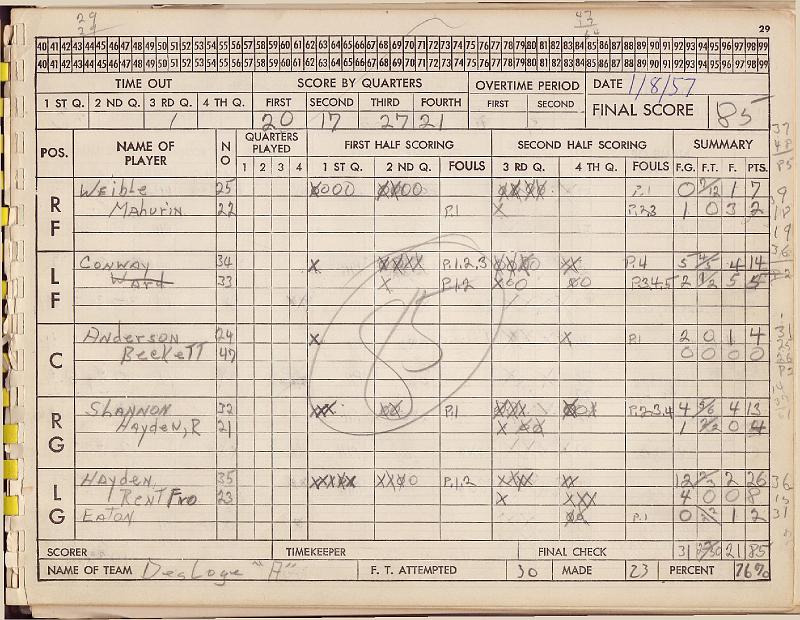 29
29
47
17
64
29
40 41 42 43 44 45 46 47 48 49 50 51 52 53 54 55 56 57 58 59 60 61 62 63 64 65 66 67 68 69 70 71 72 73 74 75 76 77 78 79 80 81 82 83 84 85 86 87 88 89 90 91 92 93 94 95 96 97 98 99
40 41 42 43 44 45 46 47 48 49 50 51 52 53 54 55 56 57 58 59 60 61 62 63 64 65 66 67 68 69 70 71 72 73 74 75 76 77 78 79 80 81 82 83 84 85 86 87 88 89 90 91 92 93 94 95 96 97 98 99
TIME OUT SCORE BY QUARTERS OVERTIME PERIOD DATE 1/8/57
1 ST Q. 2 ND Q. 3 RD Q. 4 TH Q. FIRST SECOND THIRD FOURTH FIRST SECOND FINAL SCORE 85
1 20 17 27 21
POS. NAME OF PLAYER NO QUARTERS PLAYED FIRST HALF SCORING SECOND HALF SCORING SUMMARY
1 2 3 4 1 ST Q. 2 ND Q. FOULS 3 RD Q. 4 TH Q. FOULS F.G. F.T. F. PTS.
RF Weible 25 P.1 0 7/12 1 7
Mahurin 22 P.1 X P.2,3 1 0 3 2
LF Conway 34 X P.1,2,3 XX P.4 5 4/5 4 14
Ward 33 X P.1,2 P.3,4,5 2 1/2 5 5
C Anderson 24 X X P.1 2 0 1 4
Beckett 47 0 0 0 0
RG Shannon 32 XXX P.1 P.2,3,4 4 5/6 4 13
Hayden, R 21 1 2/2 0 4
LG Hayden 35 P.1,2 XX 12 2 26
Rentfro 23 X XXX 4 0 0 8
Eaton P.1 0 2/2 1 2
85
SCORER TIMEKEEPER FINAL CHECK 31 23/30 21 85
NAME OF TEAM DesLoge "A" F. T. ATTEMPTED 30 MADE 23 PERCENT 76%
37
48
85